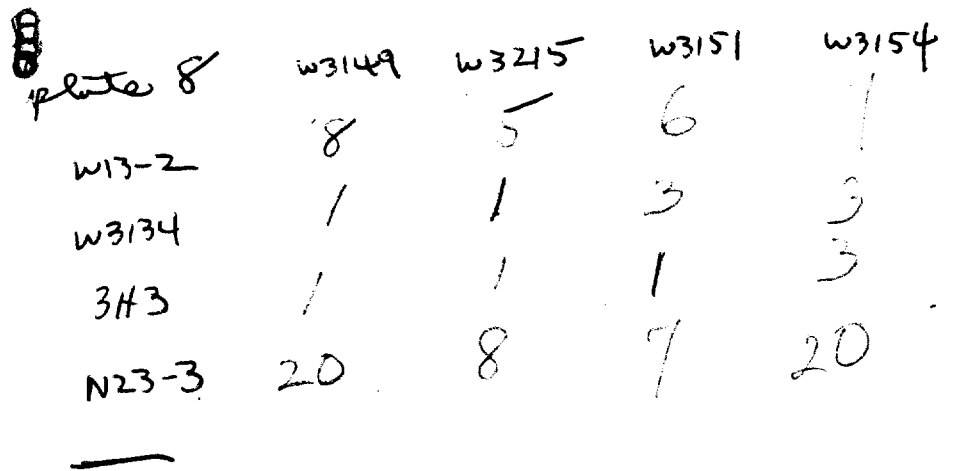 plate 8 W3149 W3215 W3151 W3154
W13-2 8 5 6 1
W3134 1 1 3 3
3H3 1 1 1 3
N23-3 20 8 7 20